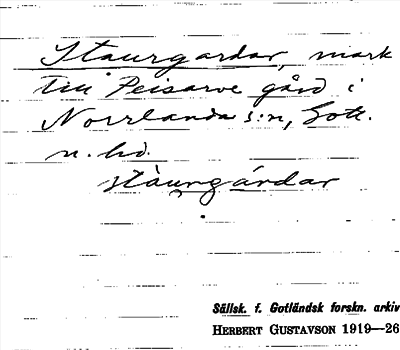 Staurgardar, mark
till Peisarve gård i
Norrlanda s:n, Gotl.
n. hd.
stàurgárdar
Sällsk. f. Gotländsk forskn. arkiv
HERBERT GUSTAVSON 1919—26